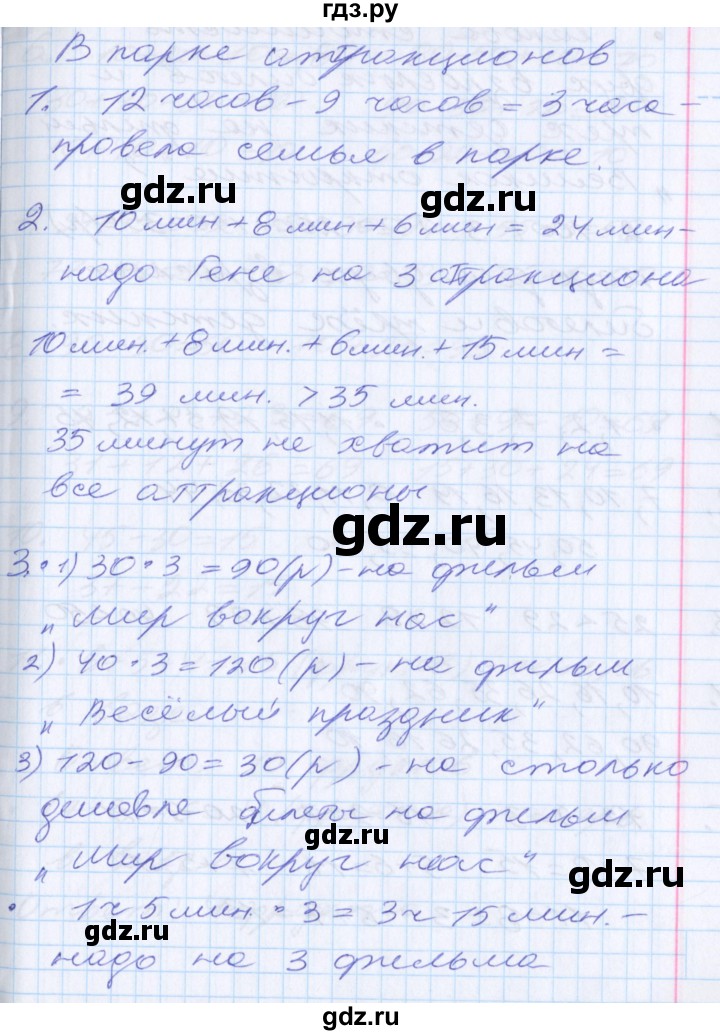 гдз.ру
В парке аттракционов
1. 12 часов – 9 часов = 3 часа –
провела семья в парке.
gdz.ru gdz.ru
2. 10 мин + 8 мин + 6 мин = 24 мин –
надо Гене на 3 аттракциона
10 мин. + 8 мин. + 6 мин. + 15 мин =
= 39 мин. > 35 мин.
35 минут не хватит на
все аттракционы
gdz.ru
3. • 1) 30 · 3 = 90 (р) – на фильм
„Мир вокруг нас“
2) 40 · 3 = 120 (р) – на фильм
„Весёлый праздник“
3) 120 – 90 = 30 (р) – на столько
дешевле билеты на фильм
gdz.ru
„Мир вокруг нас“
gdz.ru
• 1 ч 5 мин. · 3 = 3 ч 15 мин. –
gdz.ru
надо на 3 фильма
gdz.ru